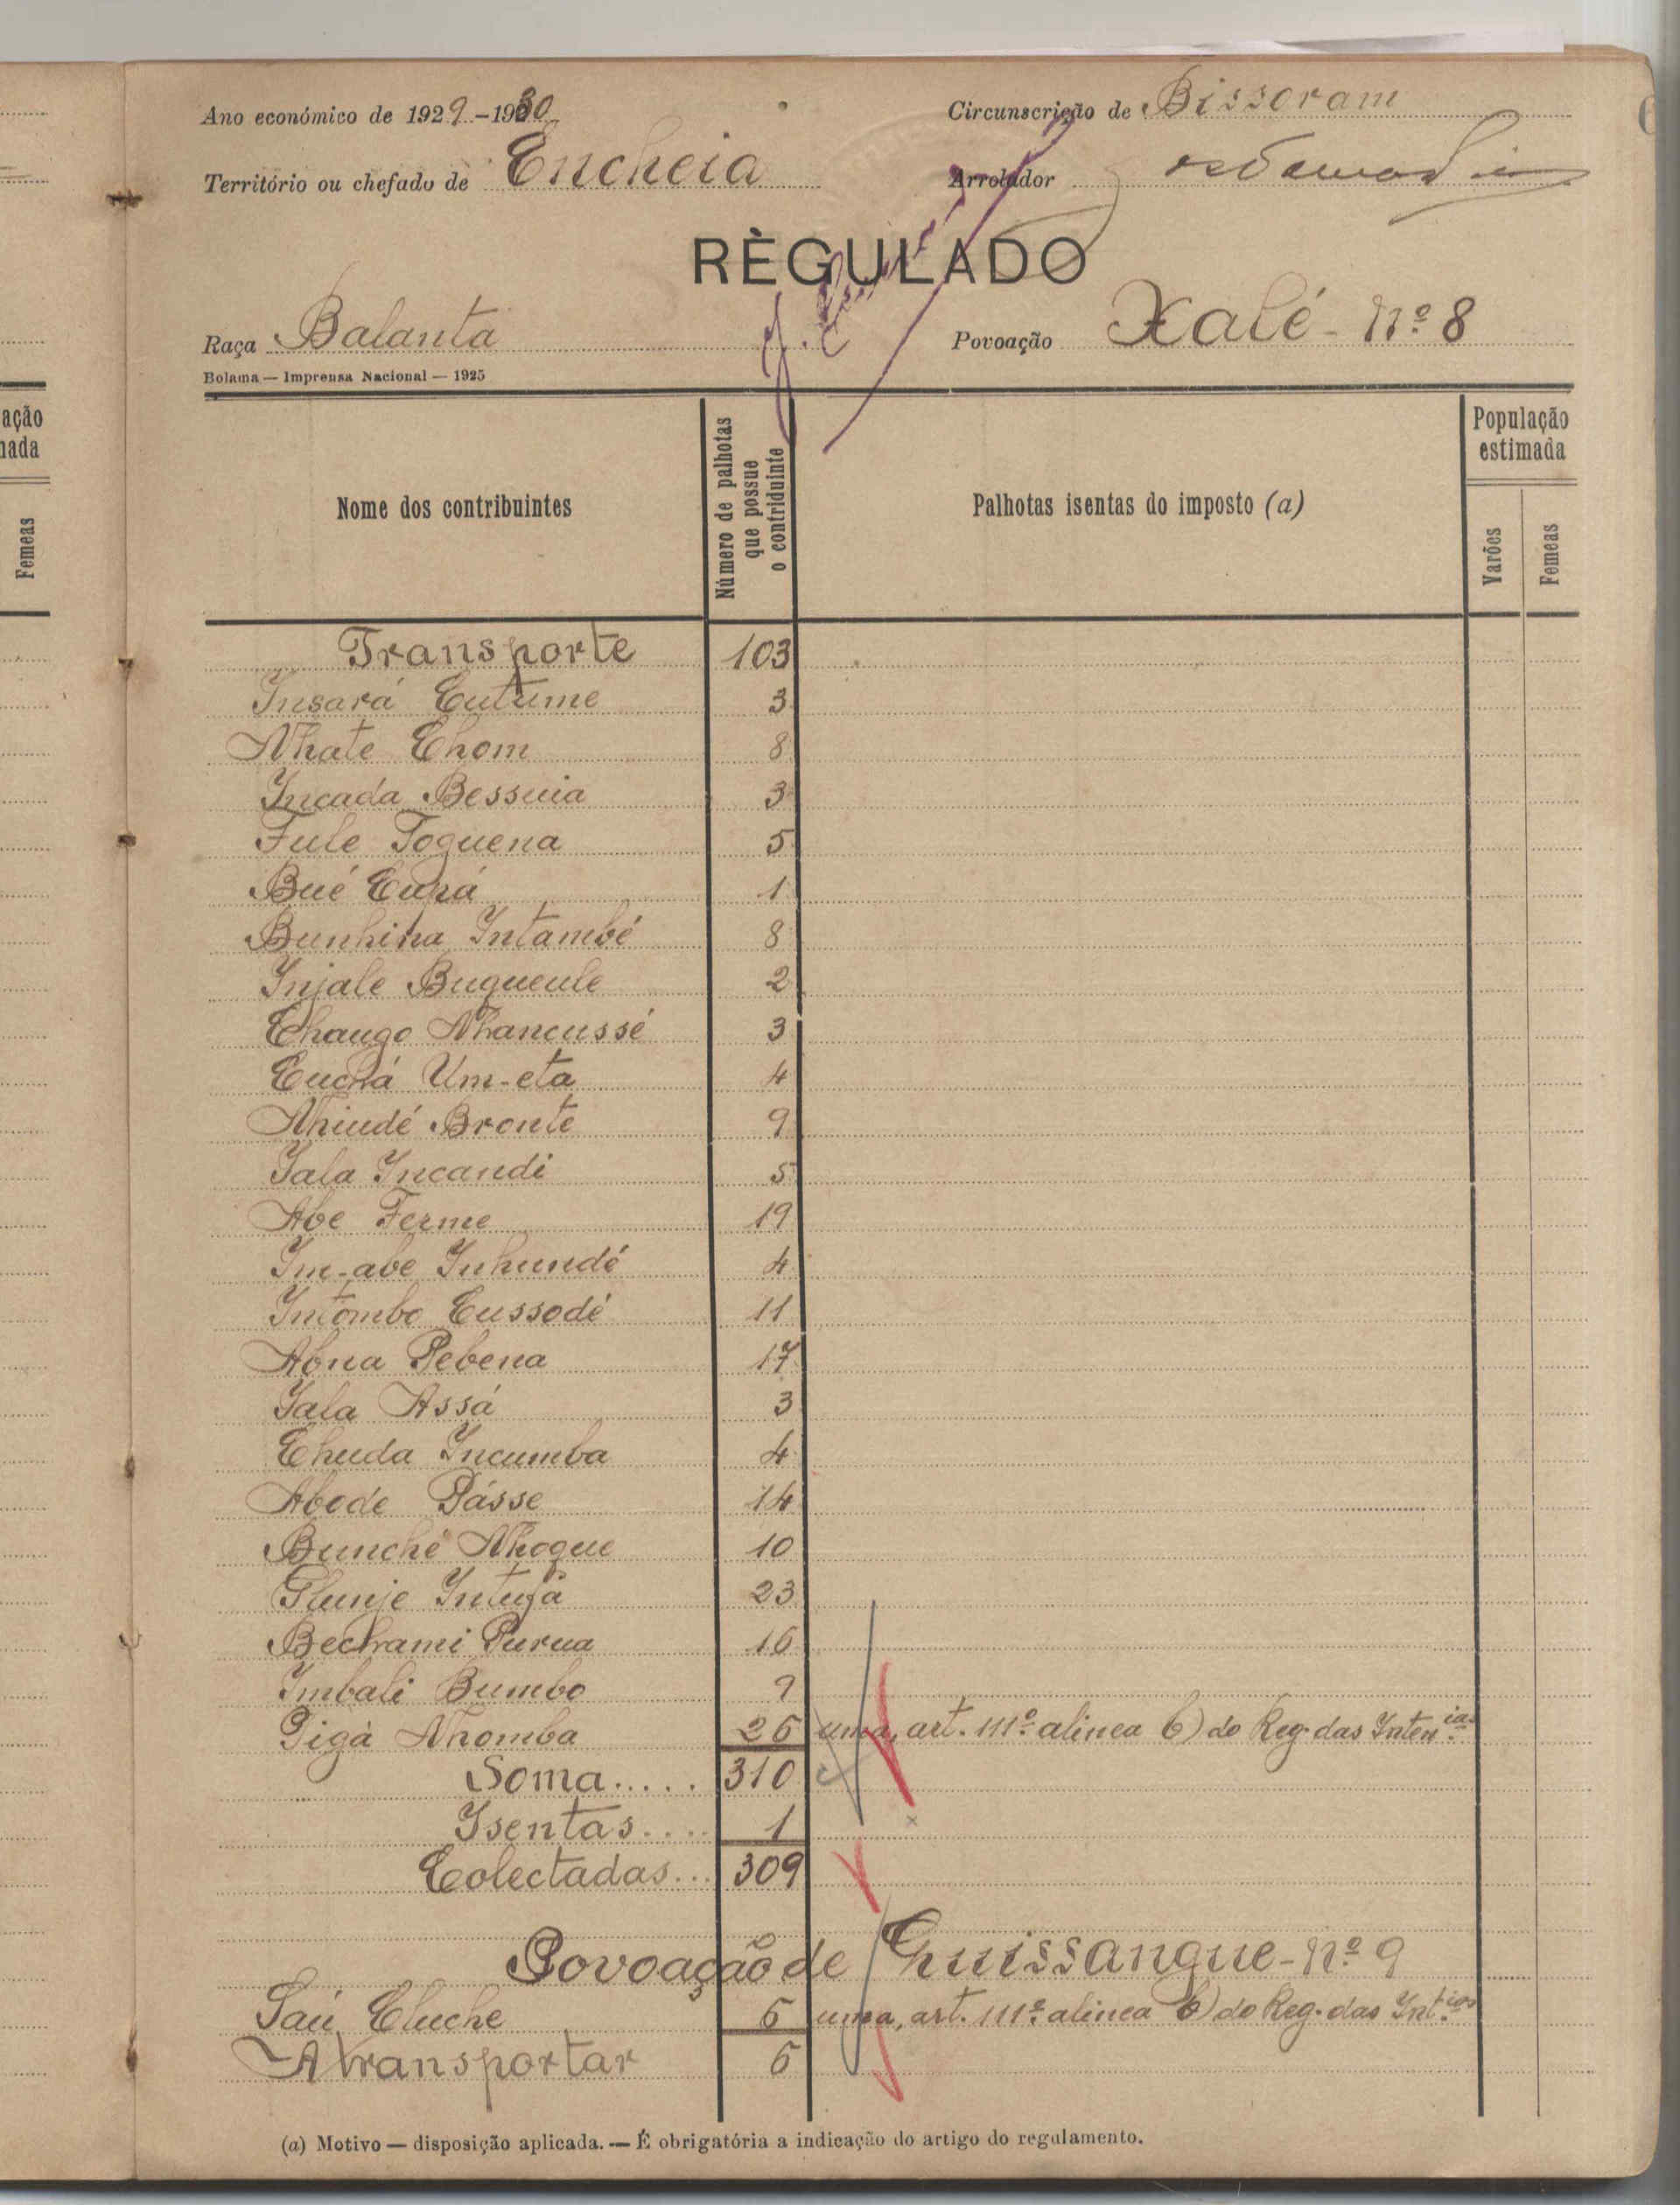 ação
nada
Femeas
Ano económico de 1929-1930
Circunscrição de Bissoram
Território ou chefado de Encheia
Arrolador
RÈGULADO
Raça Balanta
Povoação Xalé - Nº 8
Bolama — Imprensa Nacional — 1925
Nome dos contribuintes
Número de palhotas que possue o contriduinte
Palhotas isentas do imposto (a)
População estimada
Varões
Femeas
Transporte 103
Insará Cutume 3
Nhate Chom 8
Incada Bessuia 3
Fule Toguena 5
Bué 1
Bunhina Intambé 8
Injale Bugueule 2
Chango Nhancussé 3
Um-eta 4
Nhindé Bronte 9
Iala Incandi 5
Abe Ferme 19
Im-abe Inhundé 4
Intombo Cussodé 11
Abna Pebena 17
Iala Assá 3
Chuda Incumba 4
Abode Pásse 14
Bunché Nhoque 10
23
Bechami Purua 16
Imbali Bumbo 9
Pigà Nhomba 26 uma, art. 111º alinea b) do Reg. das Inten.ias
Soma..... 310
Isentas.... 1
Colectadas... 309
Povoação de Chuissangue - Nº 9
Saú Cluche 6 uma, art. 111º alinea b) do Reg. das Int.ias
A transportar 6
(a) Motivo — disposição aplicada. — É obrigatória a indicação do artigo do regulamento.